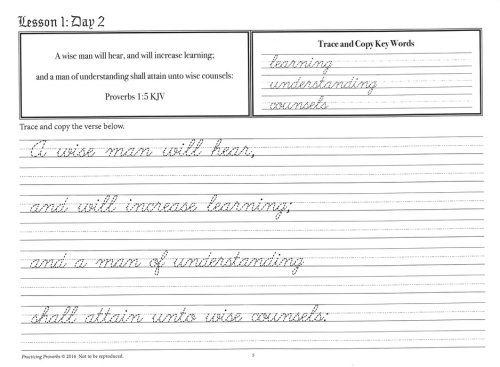 Lesson 1: Day 2
A wise man will hear, and will increase learning;
and a man of understanding shall attain unto wise counsels:
Proverbs 1:5 KJV
Trace and Copy Key Words
learning
understanding
counsels
Trace and copy the verse below.
A wise man will hear,
and will increase learning;
and a man of understanding
shall attain unto wise counsels:
Practicing Proverbs © 2016 Not to be reproduced.